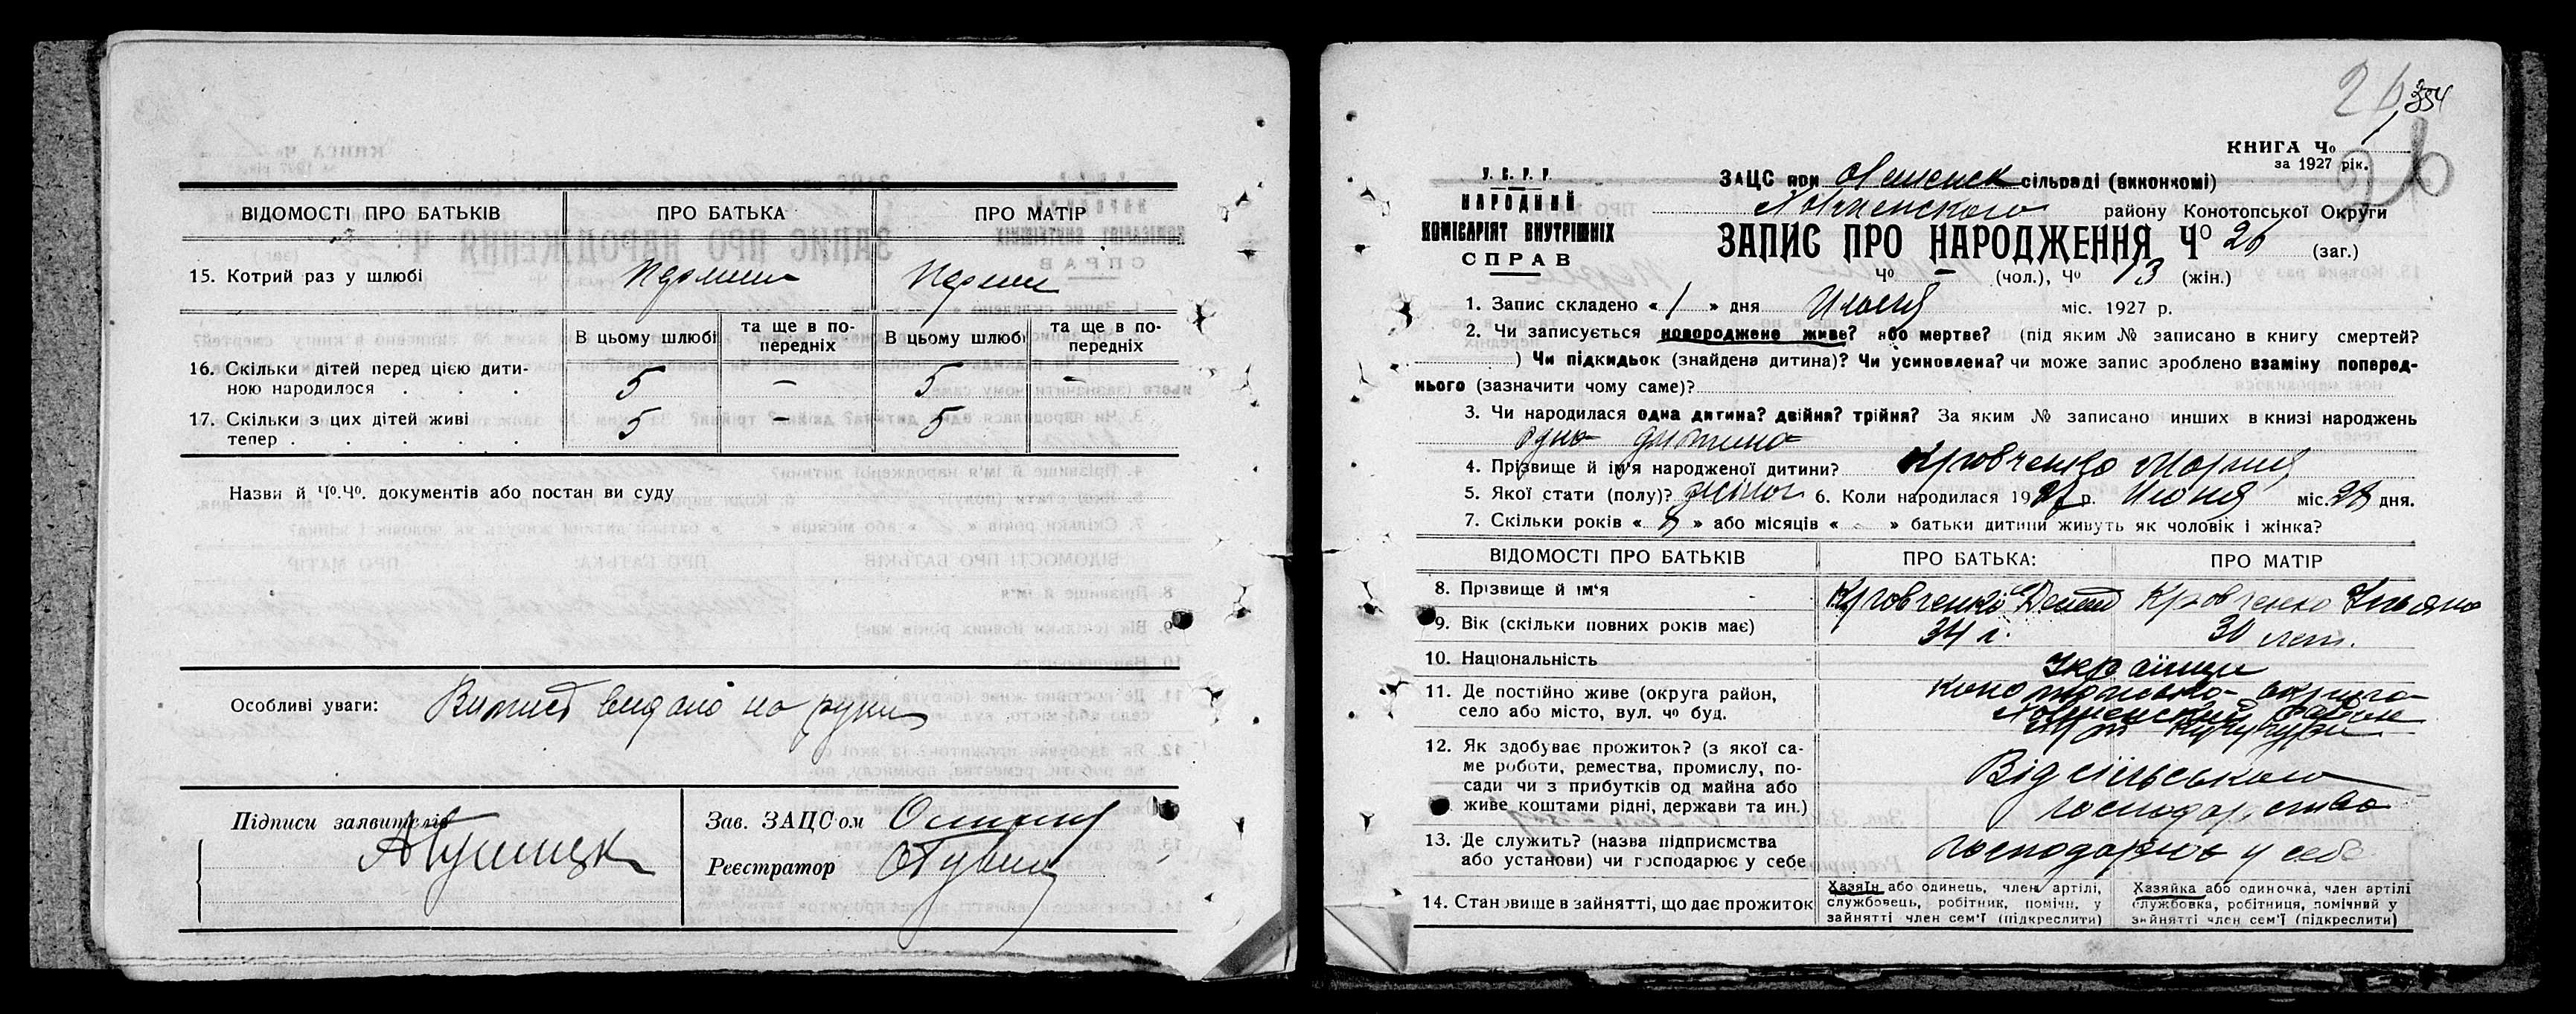 ВІДОМОСТІ ПРО БАТЬКІВ ПРО БАТЬКА ПРО МАТІР
15. Котрий раз у шлюбі
В цьому шлюбі та ще в по- В цьому шлюбі та ще в по-
передніх передніх
16. Скільки дітей перед цією дити-
ною народилося . . . 5 — 5 —
17. Скільки з цих дітей живі
тепер . . . . . 5 — 5
Назви й Чо.Чо. документів або постан ви суду
Особливі уваги: Витяг видано на руки
Підписи заявителів
Зав. ЗАЦС'ом
Реєстратор
26 354
КНИГА Чо
за 1927 рік.
26
У. С. Р. Р.
НАРОДНИЙ
КОМІСАРІЯТ ВНУТРІШНІХ
СПРАВ
ЗАЦС при сільраді (виконкомі)
району Конотопської Округи
ЗАПИС ПРО НАРОДЖЕННЯ Чо 26 (заг.)
Чо — (чол.), Чо 13 (жін.)
1. Запис складено « 1 » дня міс. 1927 р.
2. Чи записується новороджене живе? або мертве? (під яким № записано в книгу смертей?
) Чи підкидьок (знайдена дитина)? Чи усиновлена? чи може запис зроблено взаміну поперед-
нього (зазначити чому саме)?
3. Чи народилася одна дитина? двійня? трійня? За яким № записано инших в книзі народжень
одна дитина
4. Прізвище й ім'я народженої дитини? Кравченко Мария
5. Якої стати (полу)? 6. Коли народилася 1927 р. Июня міс. 28 дня.
7. Скільки років « » або місяців « » батьки дитини живуть як чоловік і жінка?
ВІДОМОСТІ ПРО БАТЬКІВ ПРО БАТЬКА: ПРО МАТІР
8. Прізвище й ім'я Кравченко Кравченко Ульяна
9. Вік (скільки повних років має) 34 г. 30 лет.
10. Національність Українці
11. Де постійно живе (округа район, Конотопська округа
село або місто, вул. чо буд. район
12. Як здобуває прожиток? (з якої са-
ме роботи, ремества, промислу, по-
сади чи з прибутків од майна або
живе коштами рідні, держави та ин.)
Від сільського
господарства
13. Де служить? (назва підприємства
або установи) чи господарює у себе господарює у себе
14. Становище в зайнятті, що дає прожиток
Хазяїн або одинець, член артілі,
службовець, робітник, поміч. у
зайнятті член сем'ї (підкреслити)
Хазяйка або одиночка, член артілі
службовка, робітниця, помічний у
зайнятті член сем'ї (підкреслити)